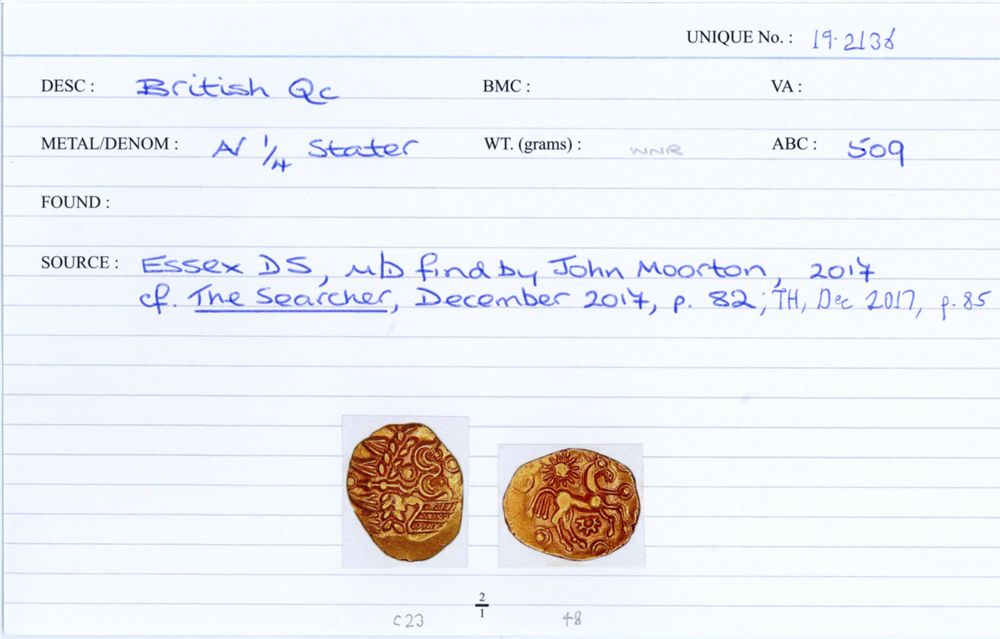 UNIQUE No. : 19.2138
DESC : British Qc BMC : VA :
METAL/DENOM : AV 1/4 Stater WT. (grams) : WNR ABC : 509
FOUND :
SOURCE : Essex DS, m/D find by John Moorton, 2017
cf. The Searcher, December 2017, p. 82; TH, Dec 2017, p. 85
2
1
c23 48